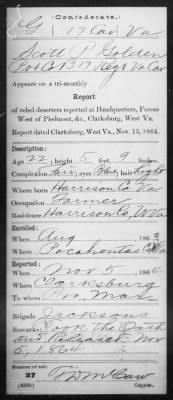 (Confederate.)
G | 17 Cav. | Va
Scott P Golden
Pvt Co. G 17 Regt Va Cav
Appears on a tri-monthly
Report
of rebel deserters reported at Headquarters, Forces
West of Piedmont, &c., Clarksburg, West Va.
Report dated Clarksburg, West Va., Nov. 15, 1864.
Description:
Age 22, height 5 feet 9 inches
Complexion Fair, eyes Blue, hair Light
Where born Harrison Co Va
Occupation Farmer
Residence Harrison Co, W Va
Enrolled:
When Aug 186
Where Pocahontas Co Va
Reported:
When Nov 5, 1864
Where Clarksburg
To whom Pro. Mar.
Brigade Jacksons
Remarks: Took the Oath
and Released Nov
5, 1864
Number of roll:
37
Copyist.